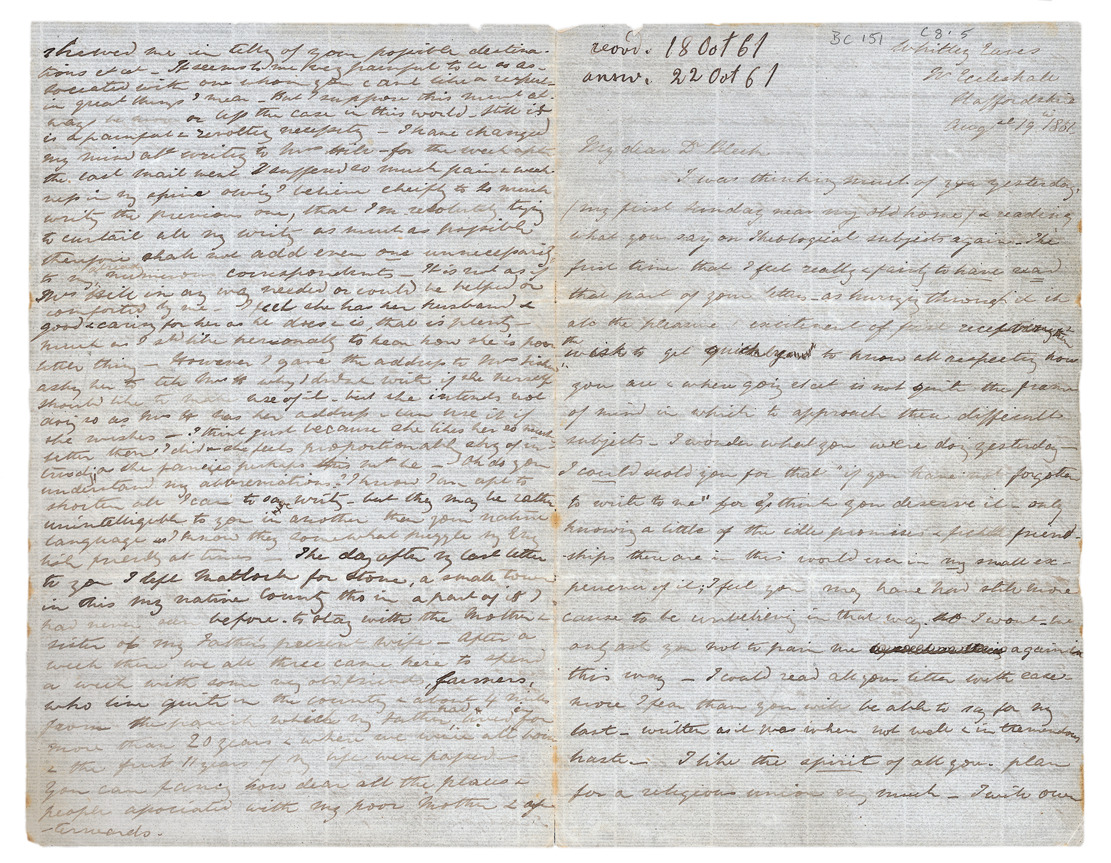 recvd. 18 Oct 61
answ. 22 Oct 61
BC 151
C8.5
Whitley Eaves
Nr Eccleshall
Staffordshire
Augst 19th 1861
My dear Dr Bleek
I was thinking much of you yesterday,
(my first Sunday near my old home) & reading
what you say on Theological subjects again. The
first time that I feel really & fairly to have read
that part of your letter - as hurrying through'd it
the pleasure & excitement of first receiving
the wish to get to know all respecting how
you are & where going et cet is not quite the frame
of mind in which to approach these difficult
subjects - I wonder what you were doing yesterday -
I could scold you for that "if you have not forgotten
to write to me" for I think you deserve it - only
knowing a little of the idle promises & fickle friend-
ships there are in this world even in my small ex-
perience of it; I feel you may have had still more
cause to be unbelieving in that way. So I wont - but
only ask you not to pain me again in
this way - I could read all your letter with ease -
more I fear than you will be able to say for my
last - written as it was when not well & in tremendous
haste - I like the spirit of all your plan
for a religious union very much - I with our
shewed me in telly of your possible destina-
tions et cet - It seems to me very painful to be as as-
sociated with one whom you cant like & respect
in great things I mean - But I suppose this must al-
ways be more or less the case in this world. Still it
is a painful & revolting necessity - I have changed
my mind abt writing to Mrs Hill - for the week after
the last mail went I suffered so much pain & weak-
ness in my spine owing I believe chiefly to so much
writg the previous one, that I'm resolutely trying
to curtail all my writg as much as possible
therefore shall not add even one unnecessarily
to my numerous correspondents - It is not as if
Mrs Hill in any way needed or could be helped or
comforted by me - I feel she has her husband &
good & caring for her as he does is, that is plenty -
much as I shd like personally to hear how she is poor
little thing - However I gave the address to Mrs
asking her to tell Mrs H why I didnt write if she herself
should like to make use of it - but she intends not
doing so as Mrs H has her address & can use it if
she wishes - I think just because she likes her so much
better than I did & she feels proportionably shy of in-
trusion as she fancies perhaps this mt be - Oh do you
understand my abbreviations? I know I am apt to
shorten all I can to say writg - but they may be rather
unintelligible to you in another than your native
language as I know they somewhat puzzle my Eng-
lish friends at times The day after my last letter
to you I left Matlock for Stone, a small town
in this my native County tho in a part of it I
had never been before. to stay with the Mother &
sister of my Father's present wife - After a
week there we all three came here to spend
a week with some very old friends, farmers,
who live quite in the country & about 4 miles
from the parish which my father had lived in for
more than 20 years & where we were all born
& the first 11 years of my life were passed -
You can fancy how dear all the places &
people associated with my poor Mother & af-
-terwards.